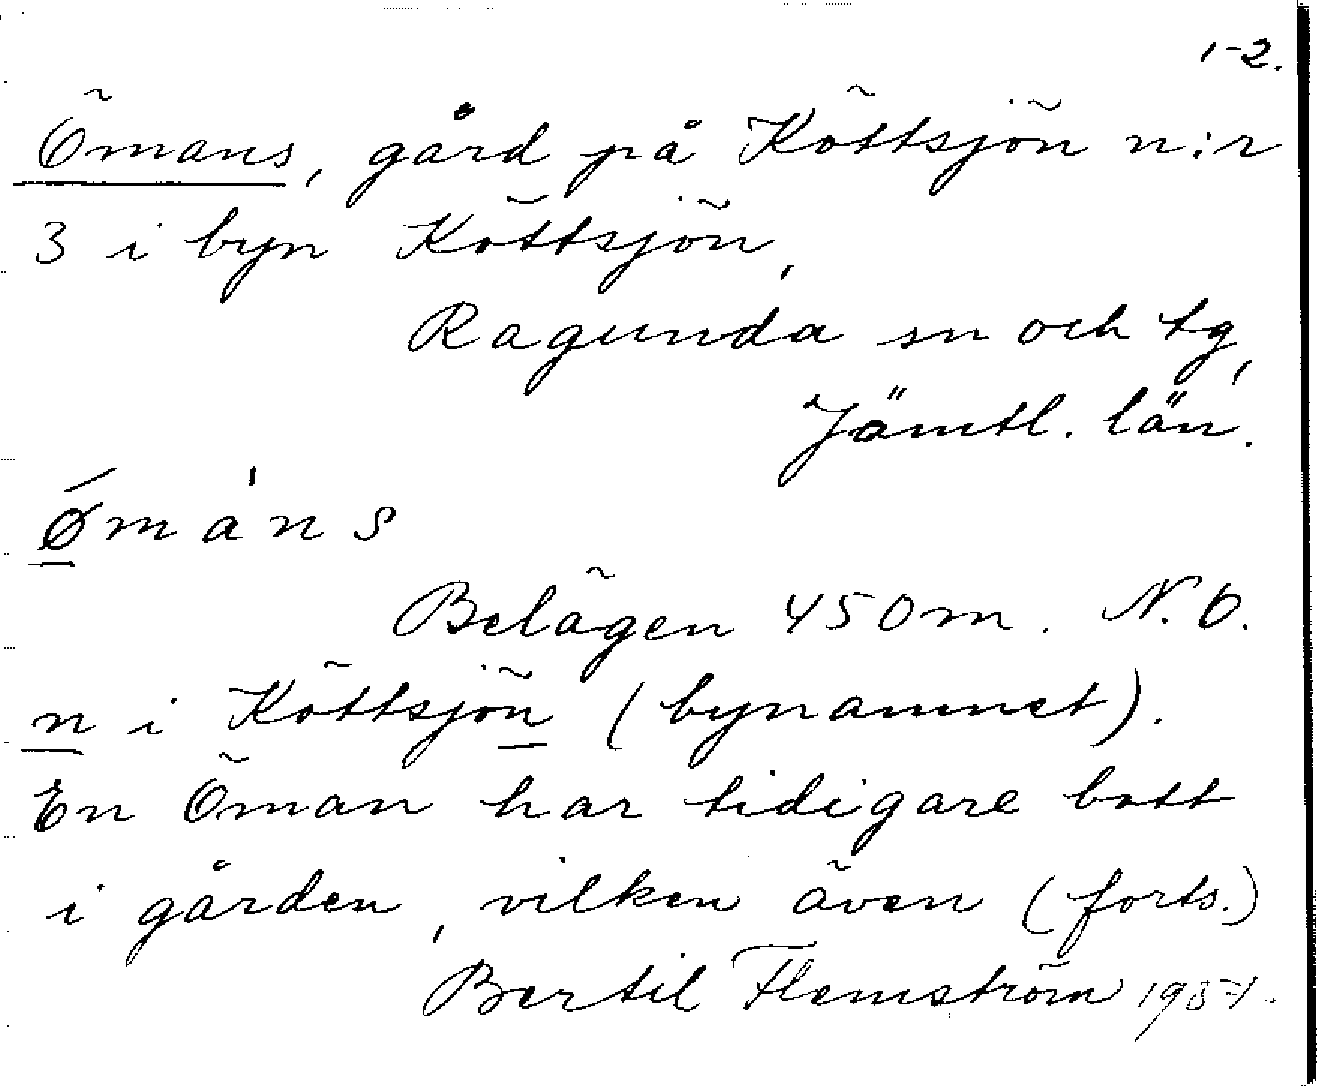 1-2.
Ömans, gård på Köttsjön n:r
3 i byn Köttsjön,
Ragunda sn och tg,
Jämtl. län.
Ǿmȧns
Belägen 450 m. N.O.
n i Köttsjön (bynamnet).
En Öman har tidigare bott
i gården, vilken även (forts.)
Bertil Flemström